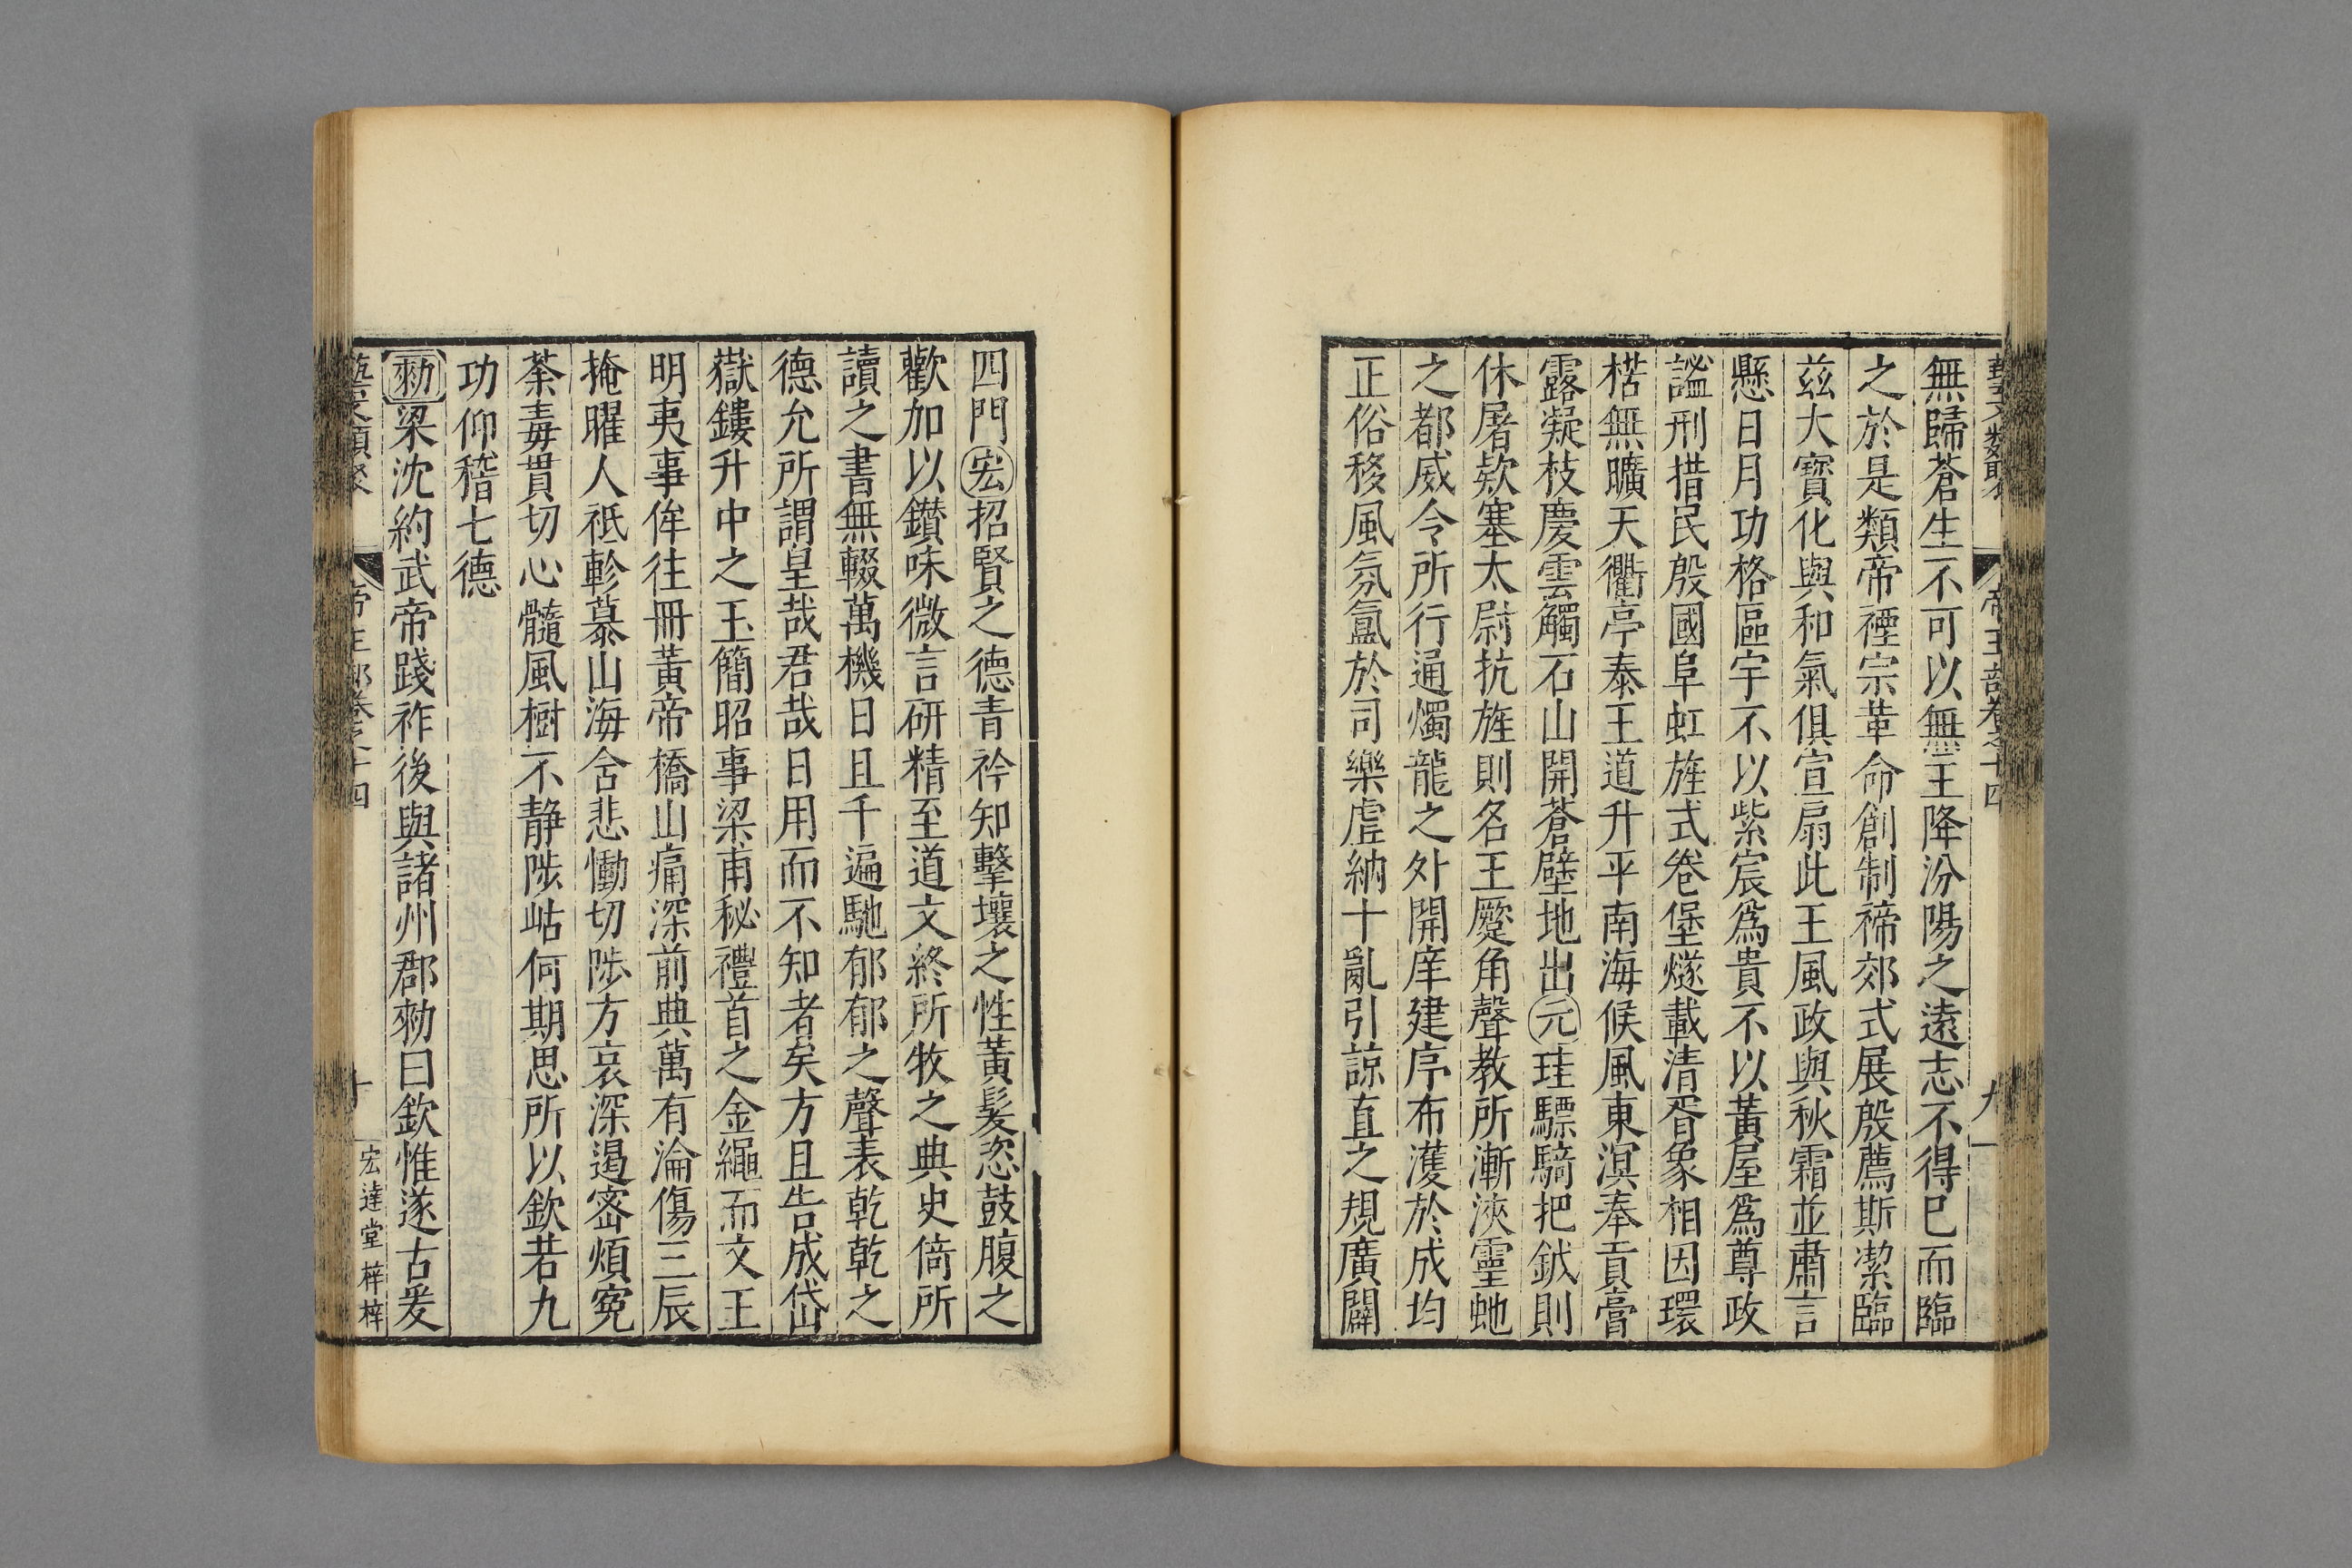 藝文類聚 帝王部卷之十四 九
無歸蒼生不可以無主降汾陽之遠志不得已而臨
之於是類帝禋宗革命創制禘郊式展殷薦斯潔臨
茲大寳化與和氣俱宣扇此王風政與秋霜並肅言
懸日月功格區宇不以紫宸爲貴不以黃屋爲尊政
謐刑措民殷國阜虹旌式卷堡燧載清胥象相因環
楛無曠天衢亭泰王道升平南海候風東溟奉貢膏
露凝枝慶雲觸石山開蒼壁地出元珪驃騎把鉞則
休屠欵塞太尉抗旌則名王厥角聲教所漸浹靈虵
之都威令所行通燭龍之外開庠建序布濩於成均
正俗移風氛氳於司樂虛納十亂引諒直之規廣闢
四門宏招賢之德青衿知擊壤之性黃髮恣鼓腹之
歡加以鑽味微言研精至道文終所牧之典史倚所
讀之書無輟萬機日且千遍馳郁郁之聲表乾乾之
德允所謂皇哉君哉日用而不知者矣方且告成岱
嶽鏤升中之玉簡昭事梁甫秘禮首之金繩而文王
明夷事侔往冊黃帝橋山痛深前典萬有淪傷三辰
掩曜人祇軫慕山海含悲慟切陟方哀深遏密煩寃
荼毒貫切心髓風樹不静陟岵何期思所以欽若九
功仰稽七德
勑梁沈約武帝踐祚後與諸州郡勑曰欽惟遂古爰
藝文類聚 帝王部卷之十四 十 宏達堂梓梓